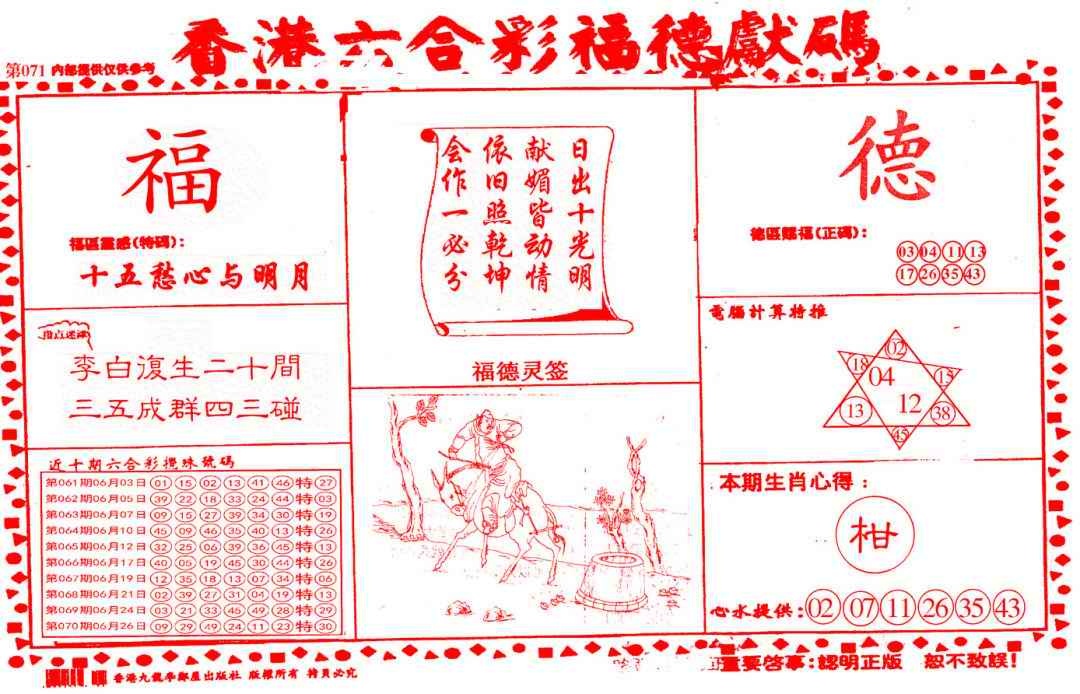 香港六合彩福德獻碼
第071 内部提供仅供参考
福
福區靈感(特碼):
十五愁心与明月
李白復生二十間
三五成群四三碰
近十期六合彩攪珠號碼
第061期06月03日 01 15 02 13 41 46 特 27
第062期06月05日 39 22 18 33 24 44 特 03
第063期06月07日 09 15 27 39 34 30 特 19
第064期06月10日 45 09 46 35 40 13 特 26
第065期06月12日 32 25 06 39 36 45 特 13
第066期06月17日 40 05 19 45 30 44 特 26
第067期06月19日 12 35 18 13 07 34 特 06
第068期06月21日 02 39 27 31 04 19 特 13
第069期06月24日 03 21 33 45 49 28 特 29
第070期06月26日 09 29 49 24 11 23 特 30
日出十光明
献媚皆动情
依旧照乾坤
会作一必分
福德灵签
德
德區賜福(正碼):
03 04 11 13
17 26 35 43
電腦計算特推
02
18 04 15
13 12 38
45
本期生肖心得:
柑
心水提供: 02 07 11 26 35 43
香港九龍學鄰屋出版社 版權所有 特員必究
重要啓事:認明正版 恕不致誤!